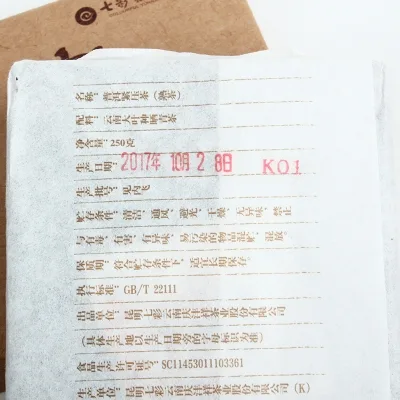 七彩
名称：普洱紧压茶（熟茶）
配料：云南大叶种晒青茶
净含量：250克
生产日期：2017年 10月 2 8日 K01
生产批号：见内飞
贮存条件：清洁、通风、避光、干燥、无异味、禁止
与有毒、有害、有异味、易污染的物品混贮、混放。
保质期：符合贮存条件下，适宜长期保存。
执行标准：GB/T 22111
出品单位：昆明七彩云南庆沣祥茶业股份有限公司
（具体生产地以生产日期旁的字母标识为准）
食品生产许可证号：SC11453011103361
生产单位：昆明七彩云南庆沣祥茶业股份有限公司（K）